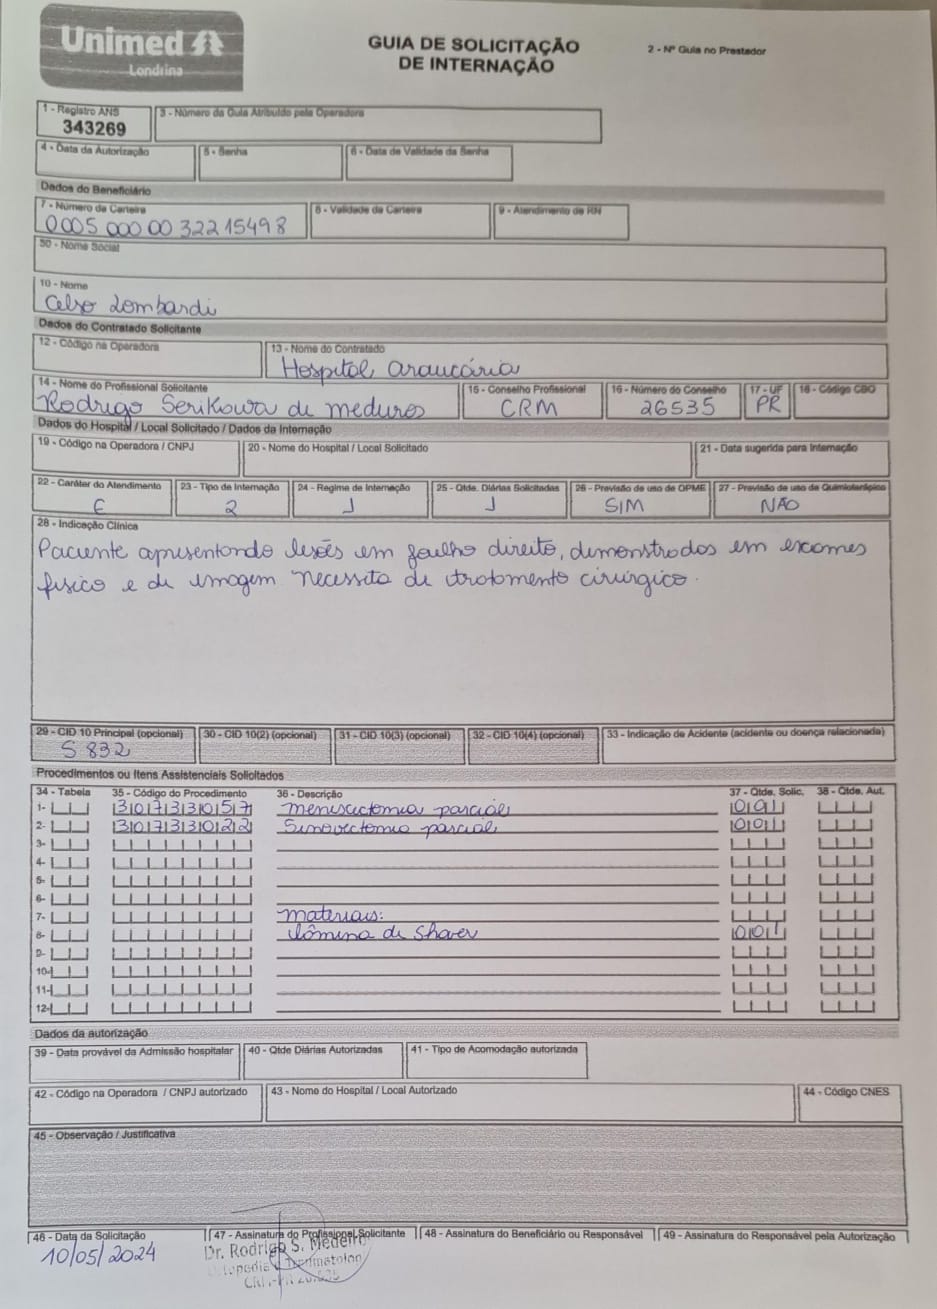 Unimed
Londrina
GUIA DE SOLICITAÇÃO
DE INTERNAÇÃO
2 - Nº Guia no Prestador
1 - Registro ANS
343269
3 - Número da Guia Atribuído pela Operadora
4 - Data da Autorização
5 - Senha
6 - Data de Validade da Senha
Dados do Beneficiário
7 - Número da Carteira
0005 000 00 322 15498
8 - Validade da Carteira
9 - Atendimento de RN
50 - Nome Social
10 - Nome
Celso Lombardi
Dados do Contratado Solicitante
12 - Código na Operadora
13 - Nome do Contratado
Hospital Araucária
14 - Nome do Profissional Solicitante
Rodrigo Serikawa de Medeiros
15 - Conselho Profissional
CRM
16 - Número do Conselho
26535
17 - UF
PR
18 - Código CBO
Dados do Hospital / Local Solicitado / Dados da Internação
19 - Código na Operadora / CNPJ
20 - Nome do Hospital / Local Solicitado
21 - Data sugerida para Internação
22 - Caráter do Atendimento
E
23 - Tipo de Internação
2
24 - Regime de Internação
1
25 - Qtde. Diárias Solicitadas
1
26 - Previsão de uso de OPME
SIM
27 - Previsão de uso de Quimioterápico
NÃO
28 - Indicação Clínica
Paciente apresentando lesões em joelho direito, demonstrados em exames
físico e de imagem necessita de tratamento cirúrgico.
29 - CID 10 Principal (opcional)
S 832
30 - CID 10(2) (opcional)
31 - CID 10(3) (opcional)
32 - CID 10(4) (opcional)
33 - Indicação de Acidente (acidente ou doença relacionada)
Procedimentos ou Itens Assistenciais Solicitados
34 - Tabela 35 - Código do Procedimento 36 - Descrição 37 - Qtde. Solic. 38 - Qtde. Aut.
1- 30733057 meniscectomia parcial 001
2- 30733022 Sinovectomia parcial 001
3-
4-
5-
6-
7- materiais:
8- lâmina de Shaver 001
9-
10-
11-
12-
Dados da autorização
39 - Data provável da Admissão hospitalar
40 - Qtde Diárias Autorizadas
41 - Tipo de Acomodação autorizada
42 - Código na Operadora / CNPJ autorizado
43 - Nome do Hospital / Local Autorizado
44 - Código CNES
45 - Observação / Justificativa
46 - Data da Solicitação
10/05/2024
47 - Assinatura do Profissional Solicitante
Dr. Rodrigo S. Medeiros
48 - Assinatura do Beneficiário ou Responsável
49 - Assinatura do Responsável pela Autorização